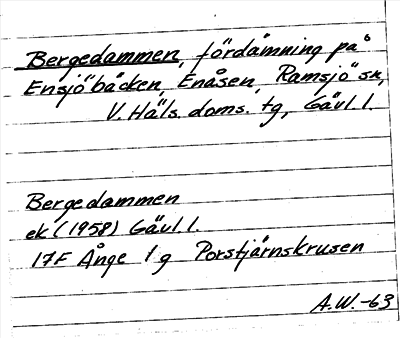 Bergedammen, fördämning på
Ensjöbäcken, Enåsen, Ramsjö sn,
V. Häls. doms. tg, Gävl. l.
Bergedammen
ek (1958) Gävl l.
17F Ånge 1 g Porstjärnskrusen
A.W.-63